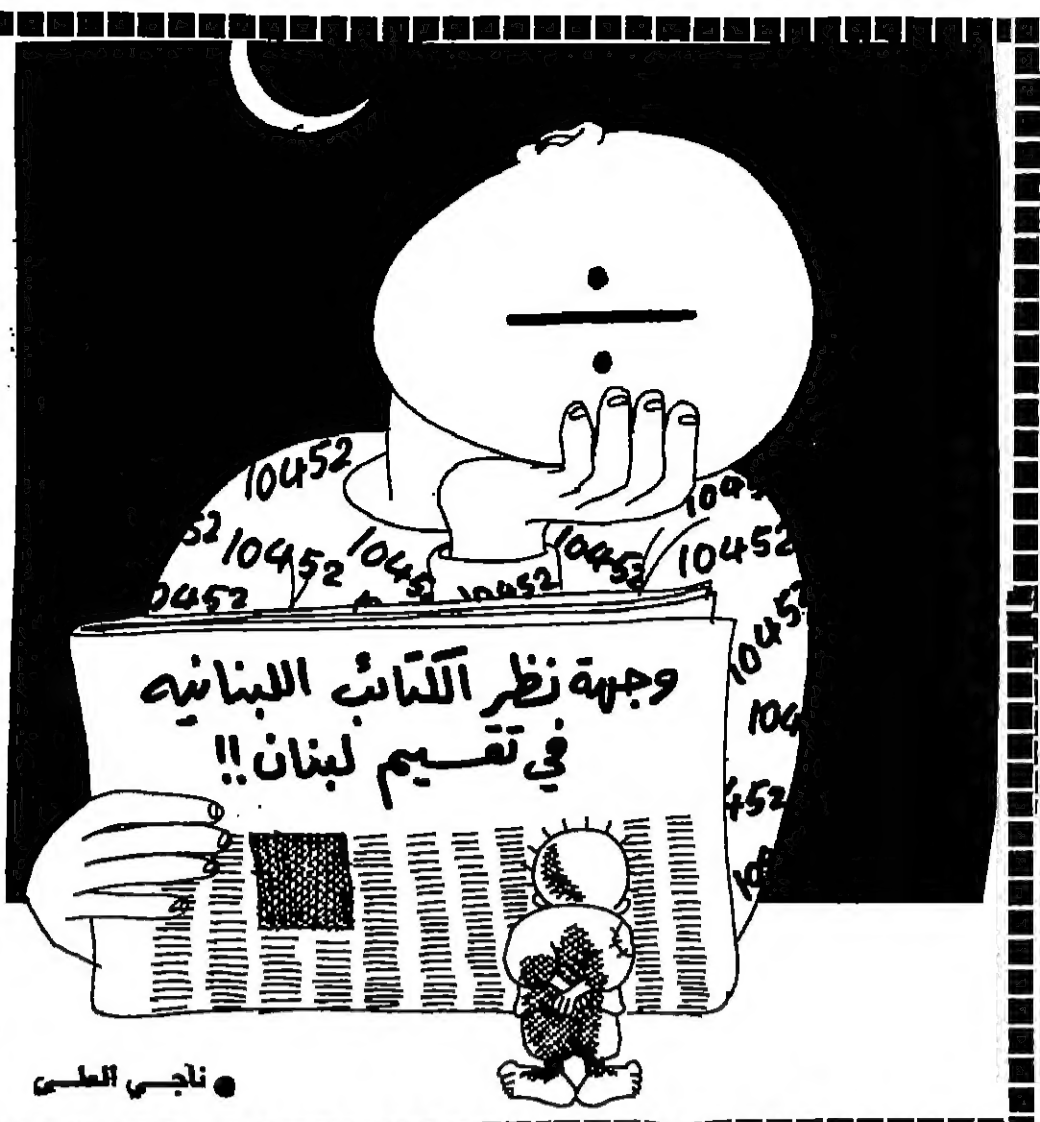 10452
52
10452
10452
10452
1045
10452
0452
10452
10453
104
452
وجهة نظر الكتائب اللبنانيه
في تقسيم لبنان!!
ناجي العلي